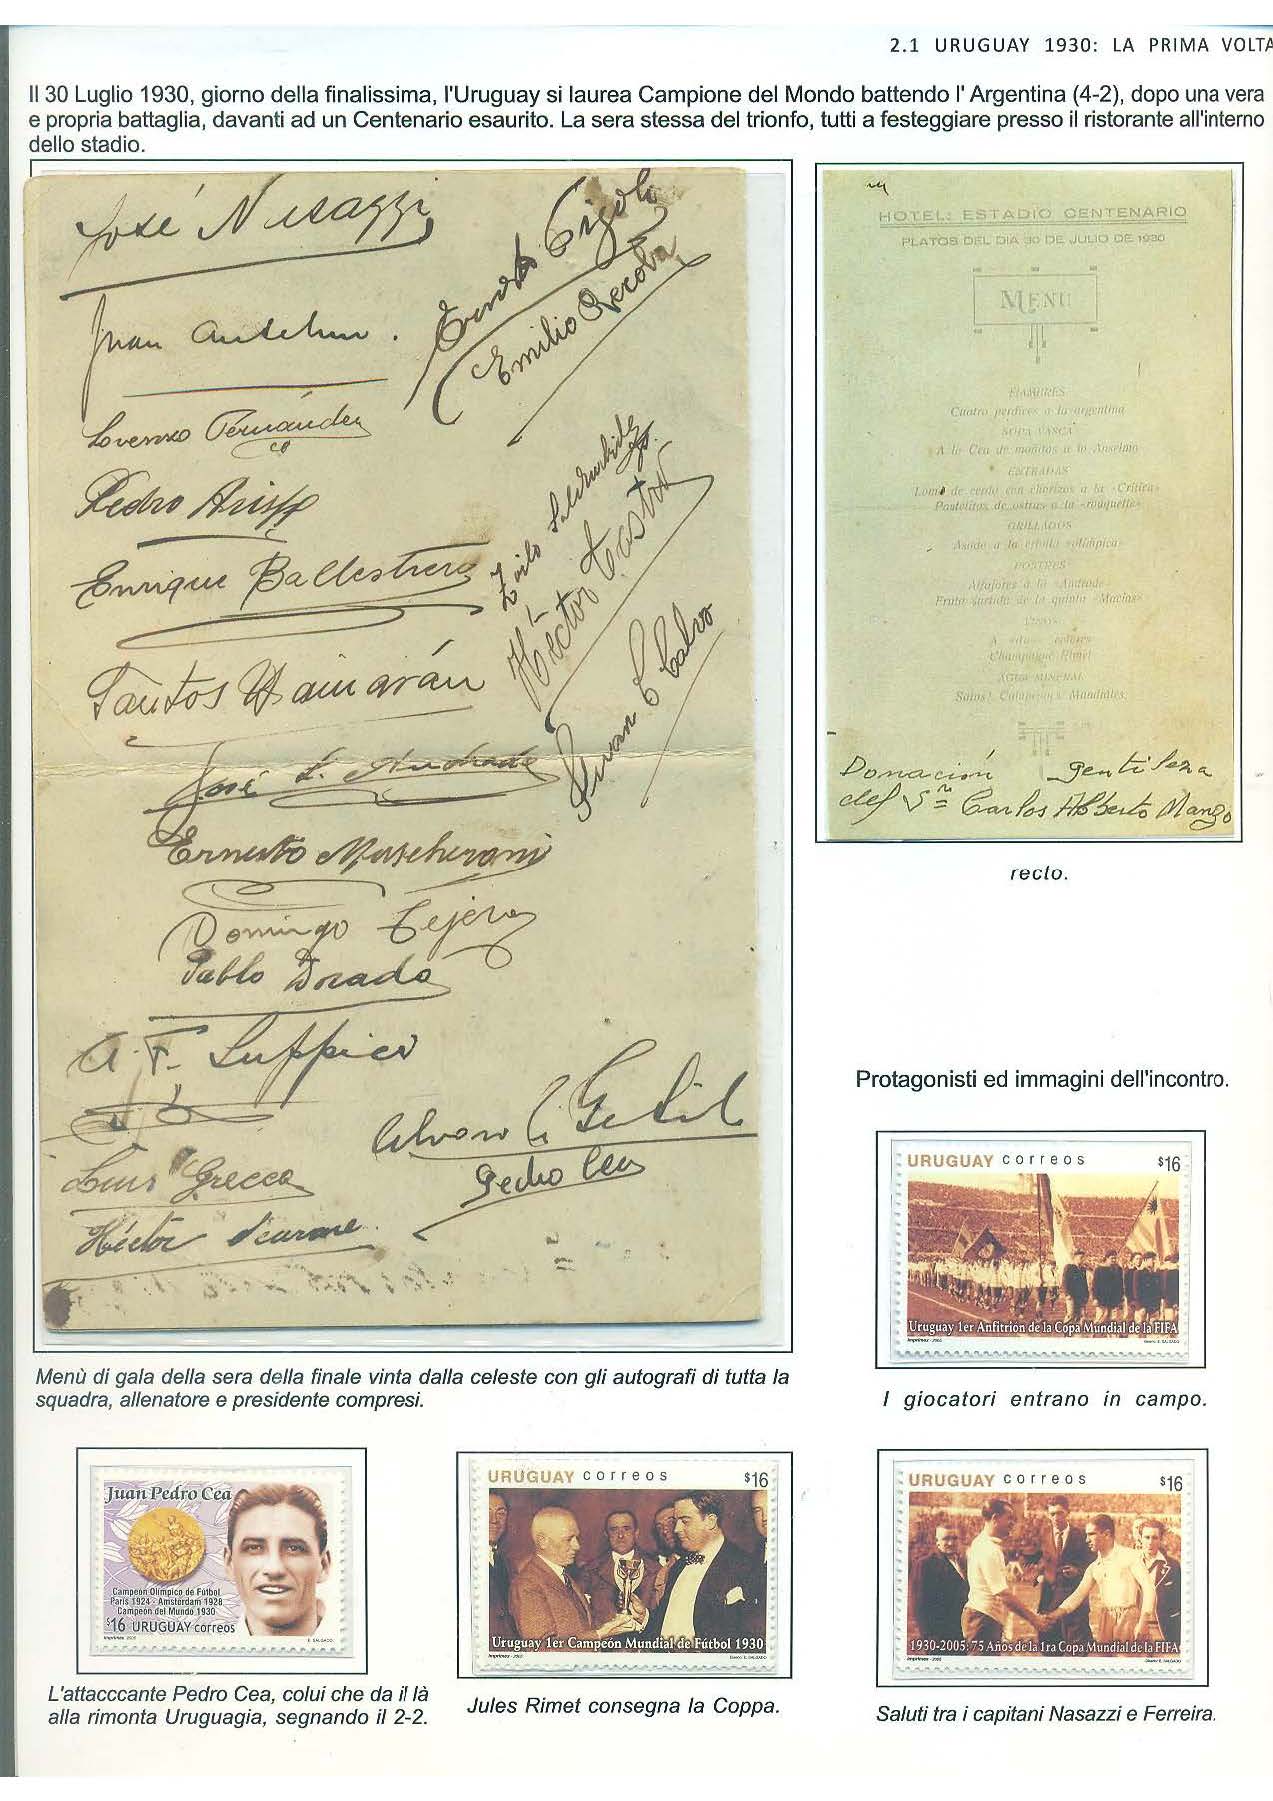 2.1 URUGUAY 1930: LA PRIMA VOLTA
Il 30 Luglio 1930, giorno della finalissima, l'Uruguay si laurea Campione del Mondo battendo l' Argentina (4-2), dopo una vera
e propria battaglia, davanti ad un Centenario esaurito. La sera stessa del trionfo, tutti a festeggiare presso il ristorante all'interno
dello stadio.
José Nasazzi
Juan Anselmo.
Lorenzo Fernández
Pedro Arispe
Enrique Ballestrero
Santos Urdinarán
José L. Andrade
Ernesto Mascheroni
Domingo Tejera
Pablo Dorado
Luis Grecco
Héctor Scarone
Pedro Cea
Emilio Recoba
Zoilo Saldombide
Héctor Castro
Juan C Calvo
HOTEL: ESTADIO CENTENARIO
PLATOS DEL DIA 30 DE JULIO DE 1930
MENU
FIAMBRES
Cuatro perdices a la argentina
SOPA VASCA
A la Cea de moñitos a lo Anselmo
ENTRADAS
Lomo de cerdo con chorizos a la «Critica»
Pastelitos de ostras a la «rouquette»
GRILLADOS
Asado a la criolla «olímpica»
POSTRES
Alfajores a lo «Andrade»
Fruta surtida de la quinta «Macías»
Champagne Rimet
AGUA MINERAL
Salus! Campeones Mundiales.
Donación gentileza
del Sr Carlos Alberto Mango
recto.
Protagonisti ed immagini dell'incontro.
URUGUAY correos $16
Uruguay 1er Anfitrión de la Copa Mundial de la FIFA
Imprimex - 2005
I giocatori entrano in campo.
Menù di gala della sera della finale vinta dalla celeste con gli autografi di tutta la
squadra, allenatore e presidente compresi.
Juan Pedro Cea
Campeón Olímpico de Fútbol
Paris 1924 - Amsterdam 1928
Campeón del Mundo 1930
$16 URUGUAY correos
Imprimex - 2005 E. SALGADO
L'attacccante Pedro Cea, colui che da il là
alla rimonta Uruguagia, segnando il 2-2.
URUGUAY correos $16
Uruguay 1er Campeón Mundial de Fútbol 1930
Imprimex - 2005
Jules Rimet consegna la Coppa.
URUGUAY correos $16
1930-2005: 75 Años de la 1ra Copa Mundial de la FIFA
Imprimex - 2005
Saluti tra i capitani Nasazzi e Ferreira.